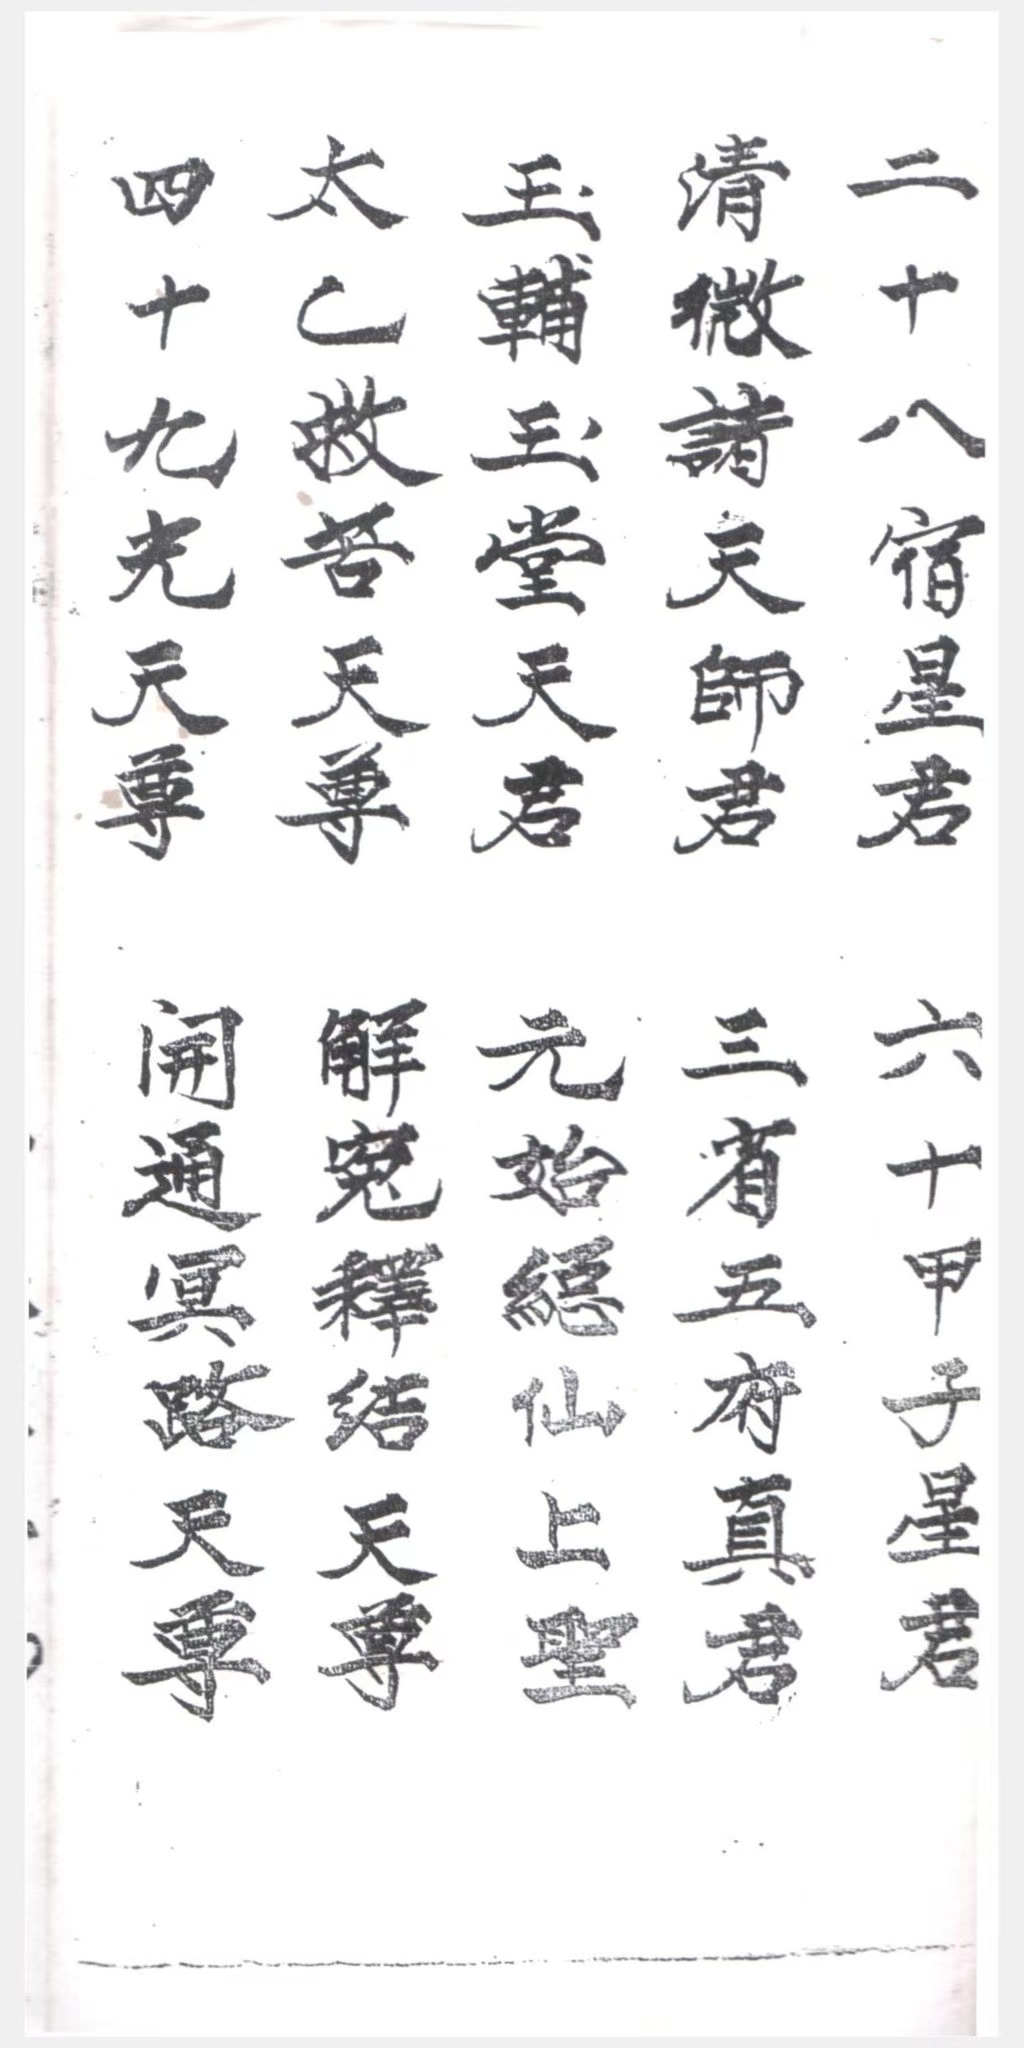 二十八宿星君　六十甲子星君
清微諸天師君　三省五府真君
玉輔玉堂天君　元始總仙上聖
太乙救苦天尊　解冤釋結天尊
四十九光天尊　開通冥路天尊